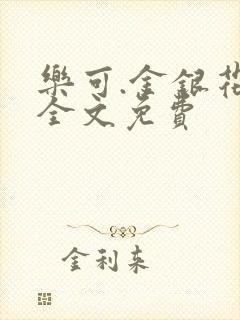 樂可.金銀花
全文免費
金利来